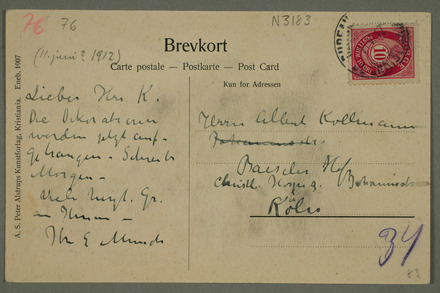 76
76
N3183
(11. juni ? 1912)
Brevkort
Carte postale — Postkarte — Post Card
Kun for Adressen
A. S. Peter Alstrups Kunstforlag, Kristiania. Eneb. 1907
10
Lieber Herr K.
Die Dekorationen
werden jetzt auf-
gehangen – Schreibe
Morgen –
Viele herzl. Gr.
an Ihnen –
Ihr E Munch
Herrn Albert Kollmann
Baseler Hf
Christl. Hospiz
Köln
34